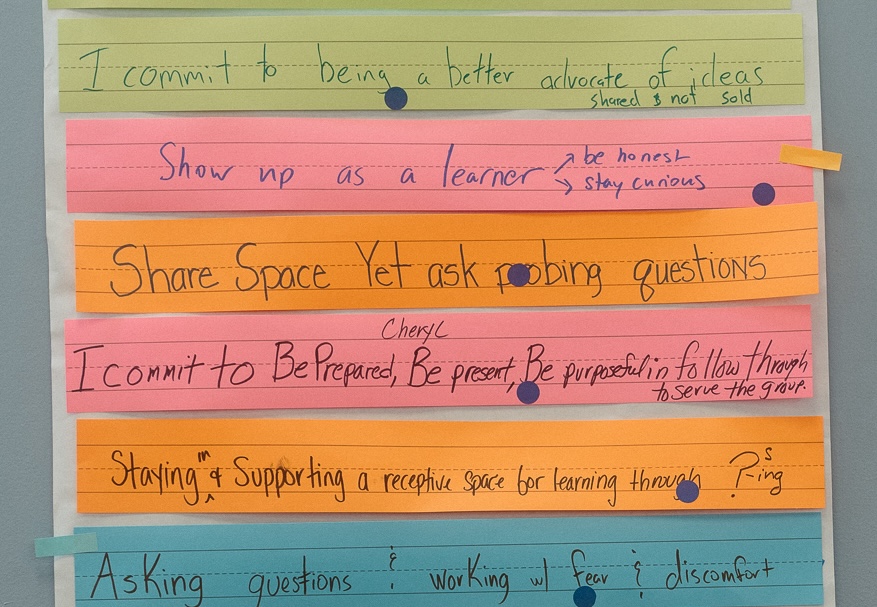 I commit to being a better advocate of ideas
shared & not sold
Show up as a learner → be honest
→ stay curious
Share Space Yet ask probing questions
Cheryl
I commit to Be Prepared, Be present, Be purposeful in follow through
to serve the group.
Staying in & Supporting a receptive space for learning through ?-ings
Asking questions & working w/ fear & discomfort